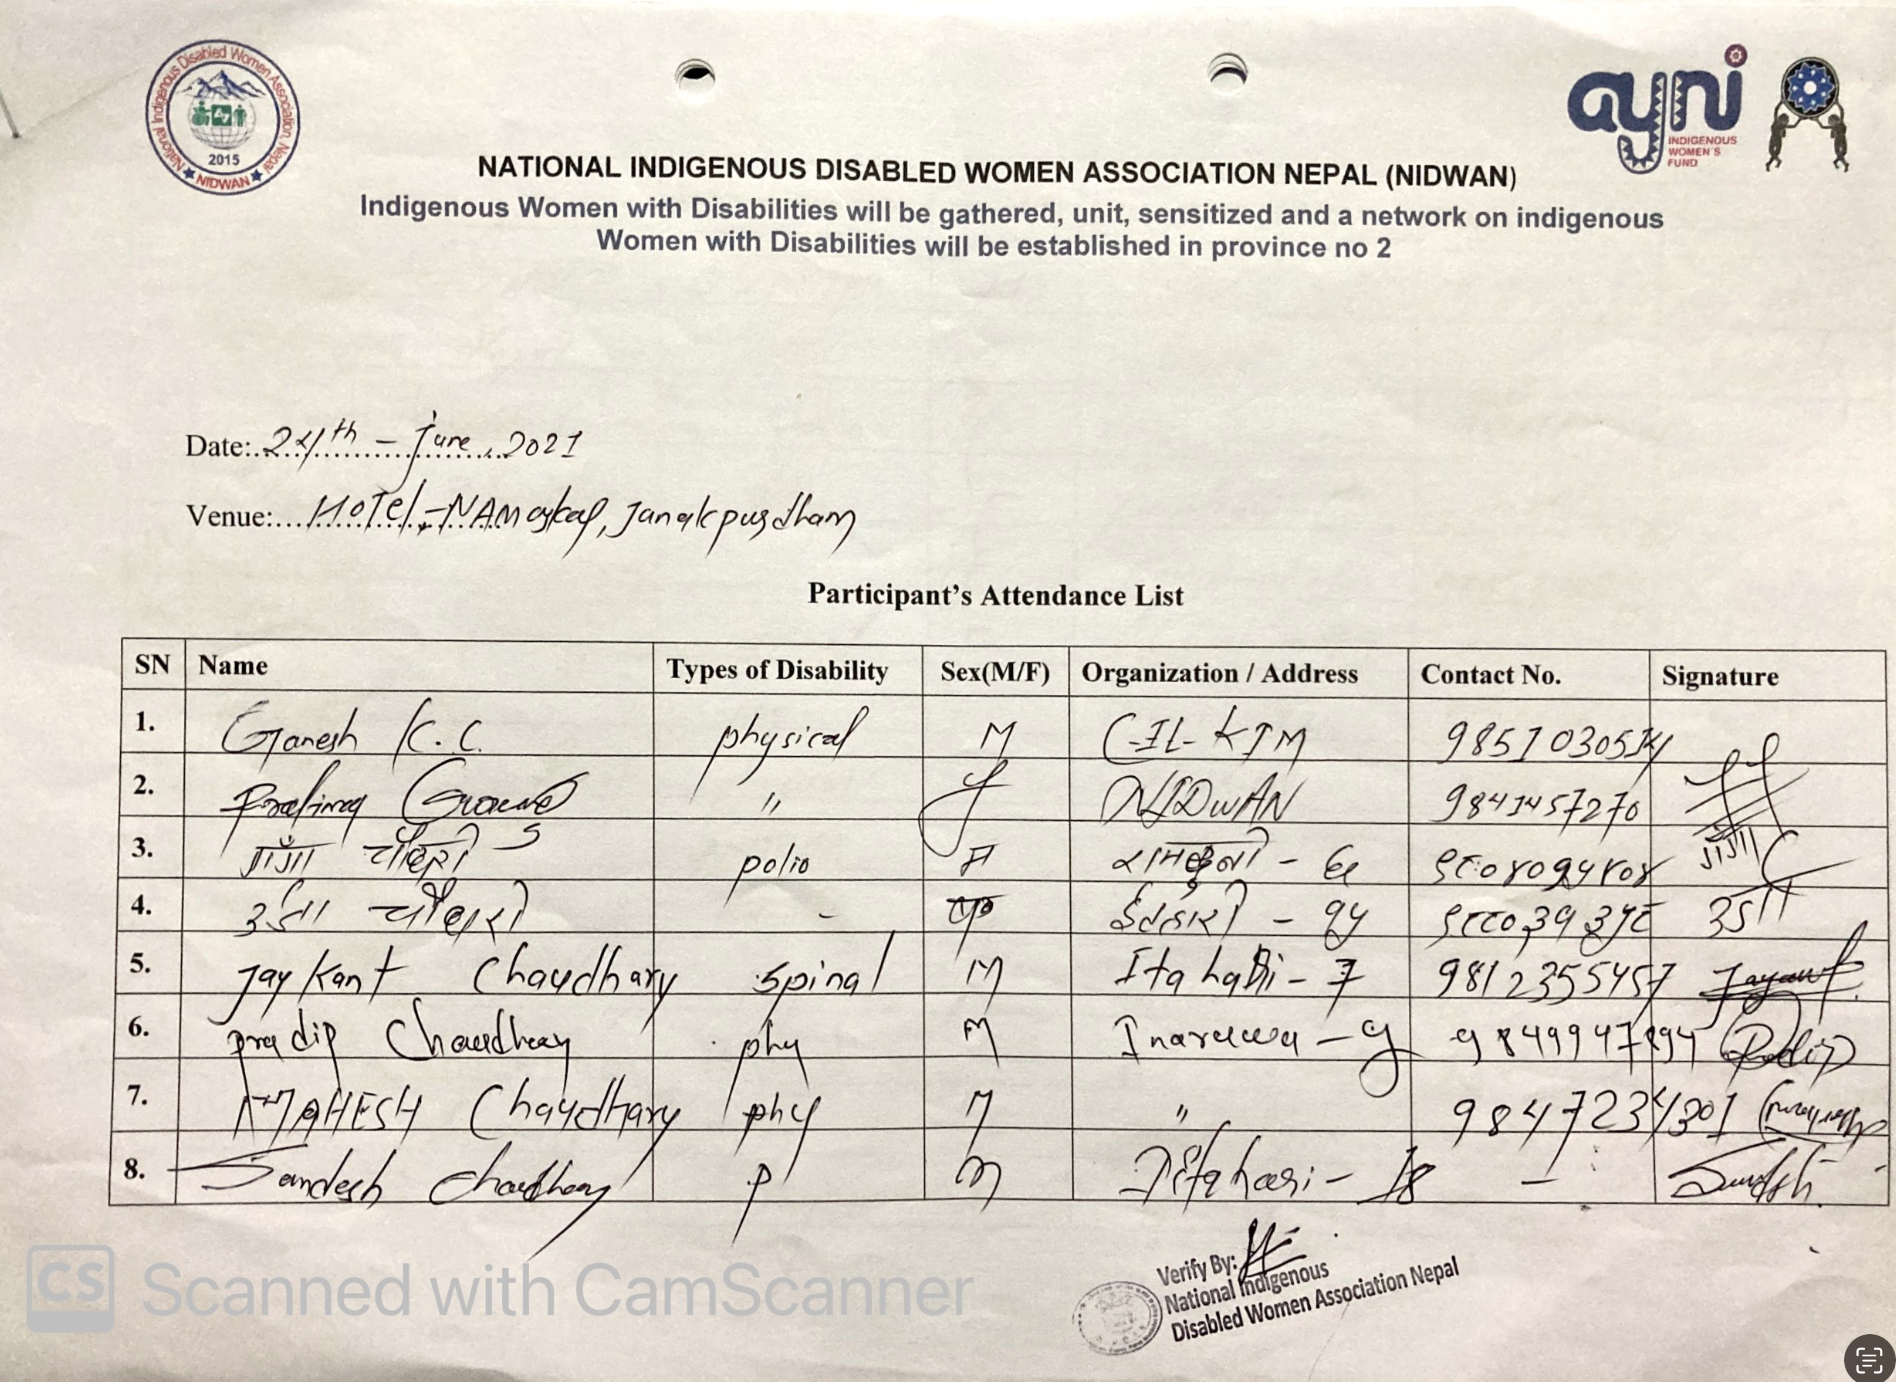 National Indigenous Disabled Women Association, Nepal
2015
NIDWAN
ayni
INDIGENOUS
WOMEN'S
FUND
NATIONAL INDIGENOUS DISABLED WOMEN ASSOCIATION NEPAL (NIDWAN)
Indigenous Women with Disabilities will be gathered, unit, sensitized and a network on indigenous
Women with Disabilities will be established in province no 2
Date: 24th - June 2021
Venue: HoTel - Janakpurdham
Participant's Attendance List
SN Name Types of Disability Sex(M/F) Organization / Address Contact No. Signature
1. Ganesh K.C. physical M CIL-KTM
2. " f NIDWAN 9841457270
3. गंगा चौधरी polio गंगा
4. चौधरी -
5. Jay Kant Chaudhary spinal M Itahari - 7 9812355457
6. pradip Chaudhary phy M 9849947894 Pradip
7. MAHESH Chaudhary phy M " 9847234301
8. Sandesh Chaudhary P M Itahari - 18 -
Verify By:
National Indigenous
Disabled Women Association Nepal
CS Scanned with CamScanner